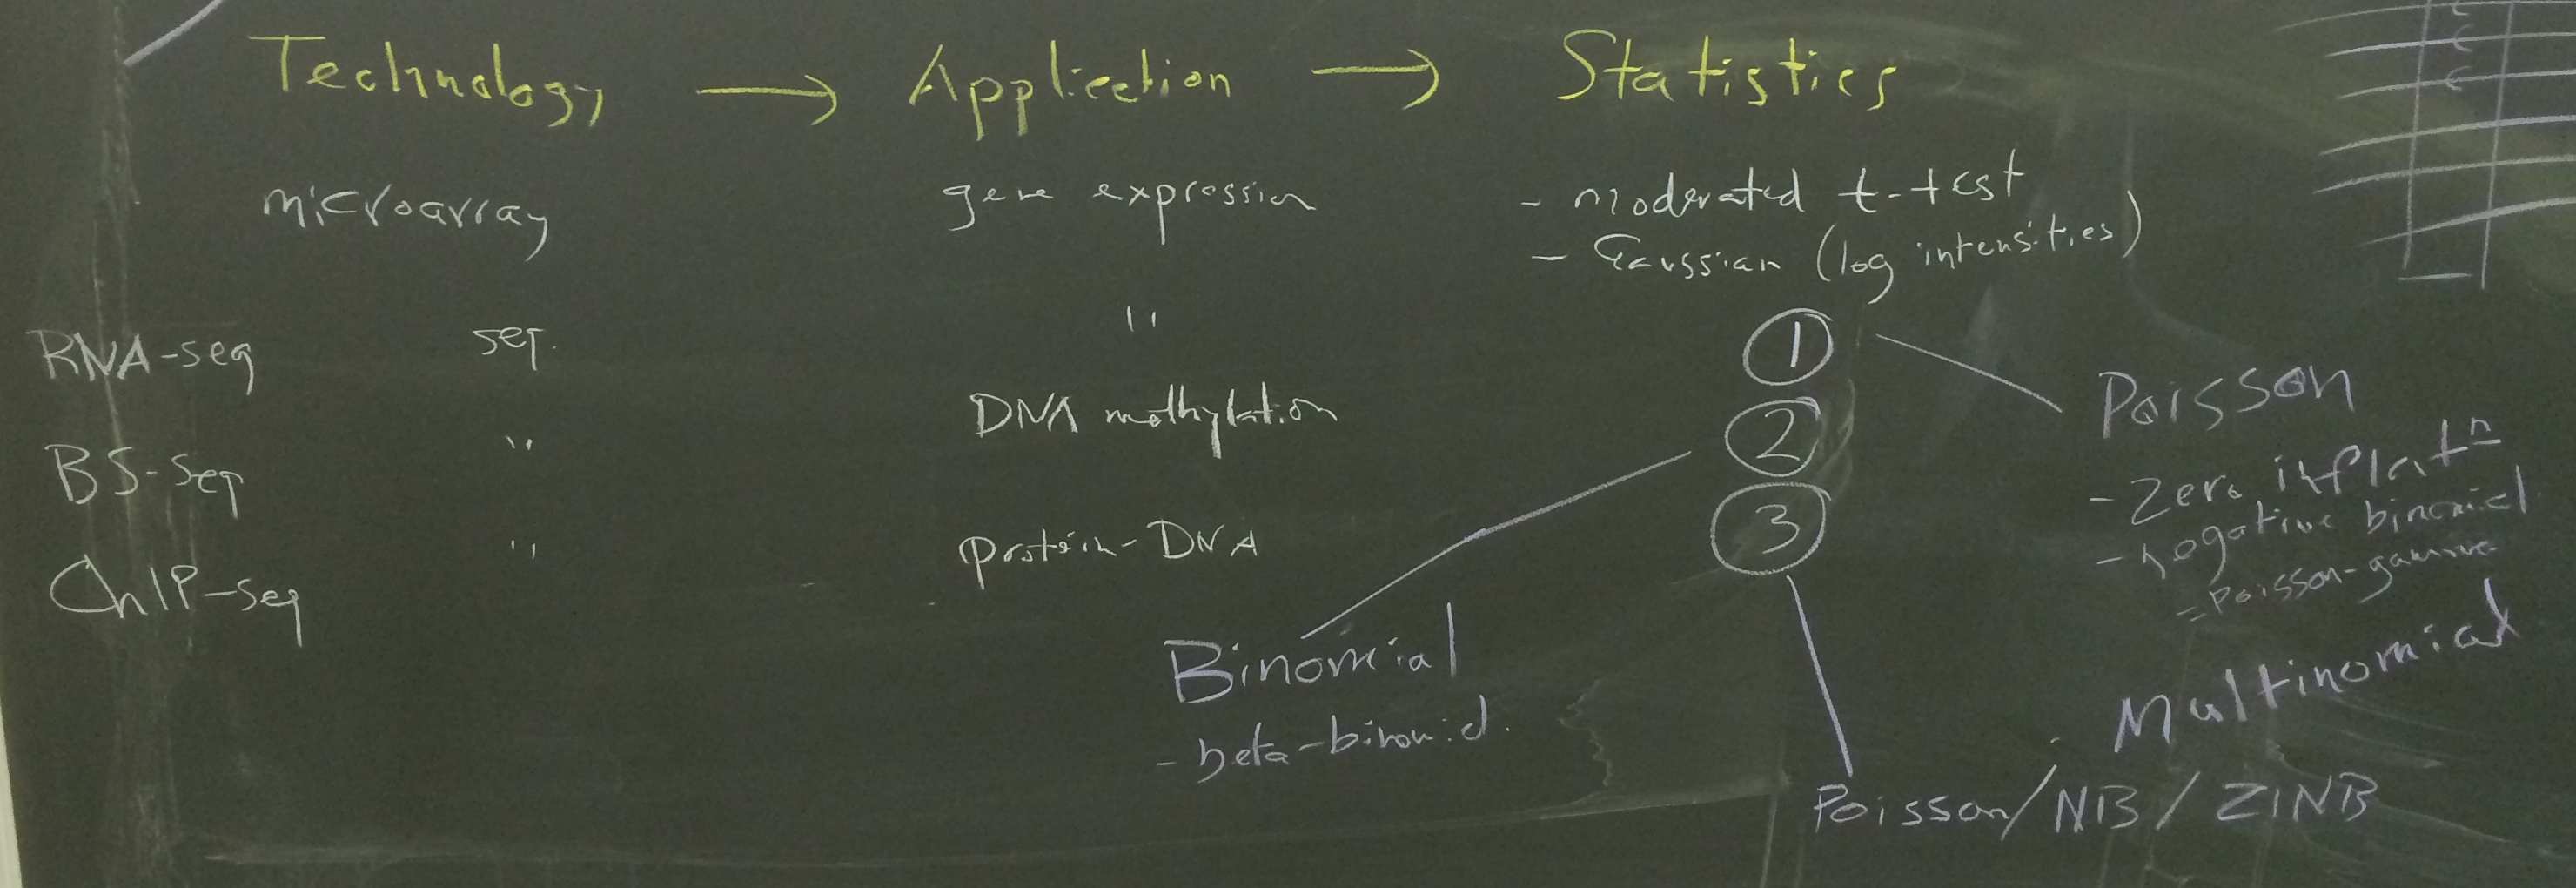 Technology → Application → Statistics
microarray gene expression - moderated t-test
- Gaussian (log intensities)
RNA-seq seq. " ①
BS-seq " DNA methylation ②
ChIP-seq " protein-DNA ③
Poisson
- Zero inflatn
- negative binomial
= Poisson-gamma
Multinomial
Binomial
- beta-binomial.
Poisson/NB/ZINB